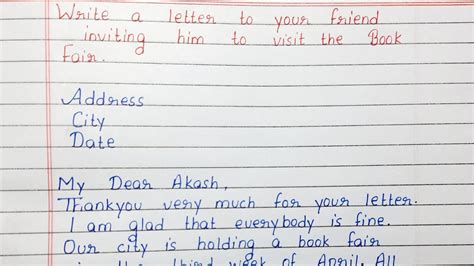 Write a letter to your friend
inviting him to visit the Book
Fair.
Address
City
Date
My Dear Akash,
Thankyou very much for your letter.
I am glad that everybody is fine.
Our city is holding a book fair
in the third week of April. All